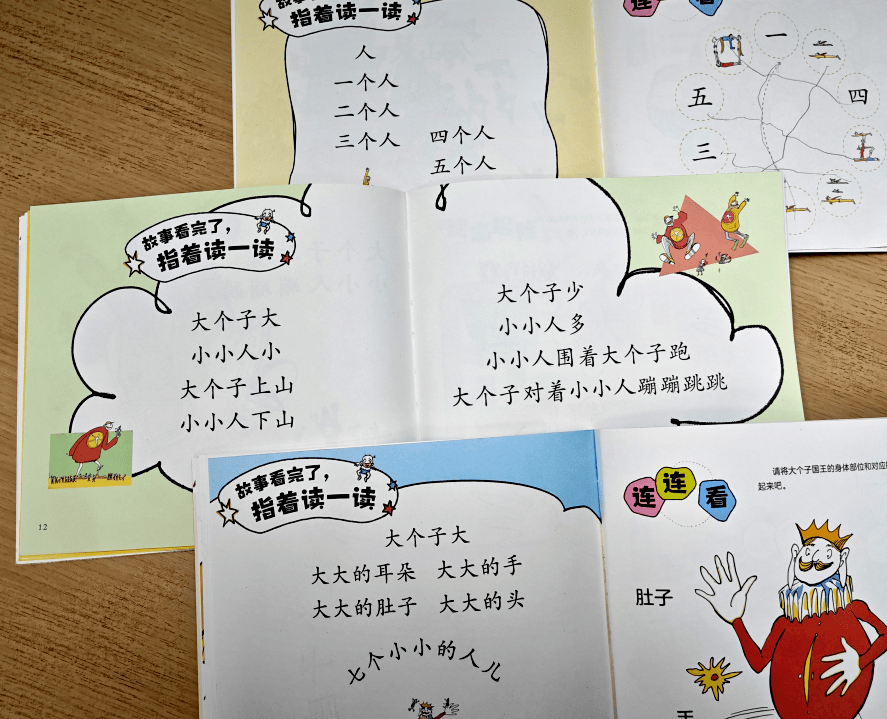 指着读一读
人
一个人
二个人
三个人
四个人
五个人
一
五
四
三
故事看完了,
指着读一读
大个子大
小小人小
大个子上山
小小人下山
12
大个子少
小小人多
小小人围着大个子跑
大个子对着小小人蹦蹦跳跳
故事看完了,
指着读一读
大个子大
大大的耳朵 大大的手
大大的肚子 大大的头
七个小小的人儿
连连看
请将大个子国王的身体部位和对应
起来吧。
肚子